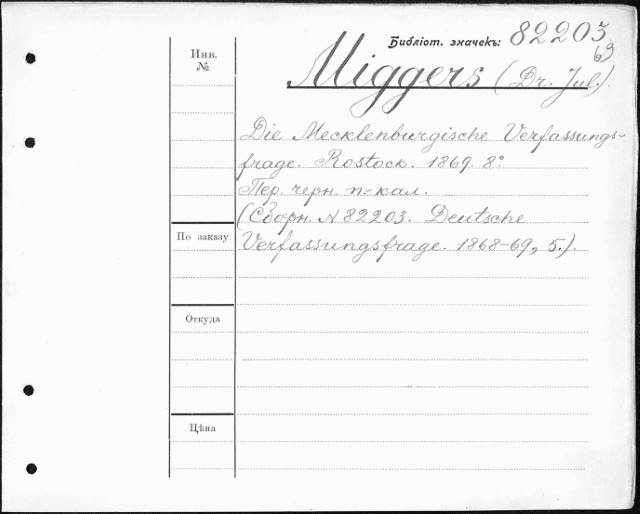 Библіот. значекъ: 82203
63
Miggers (Dr. Jul.).
Инв.
№
Die Mecklenburgische Verfassungs-
frage. Rostock. 1869. 8°.
Пер. черн. п.-кал.
(Сборн. № 82203. Deutsche
Verfassungsfrage. 1868-69, 5.).
По заказу
Откуда
Цѣна